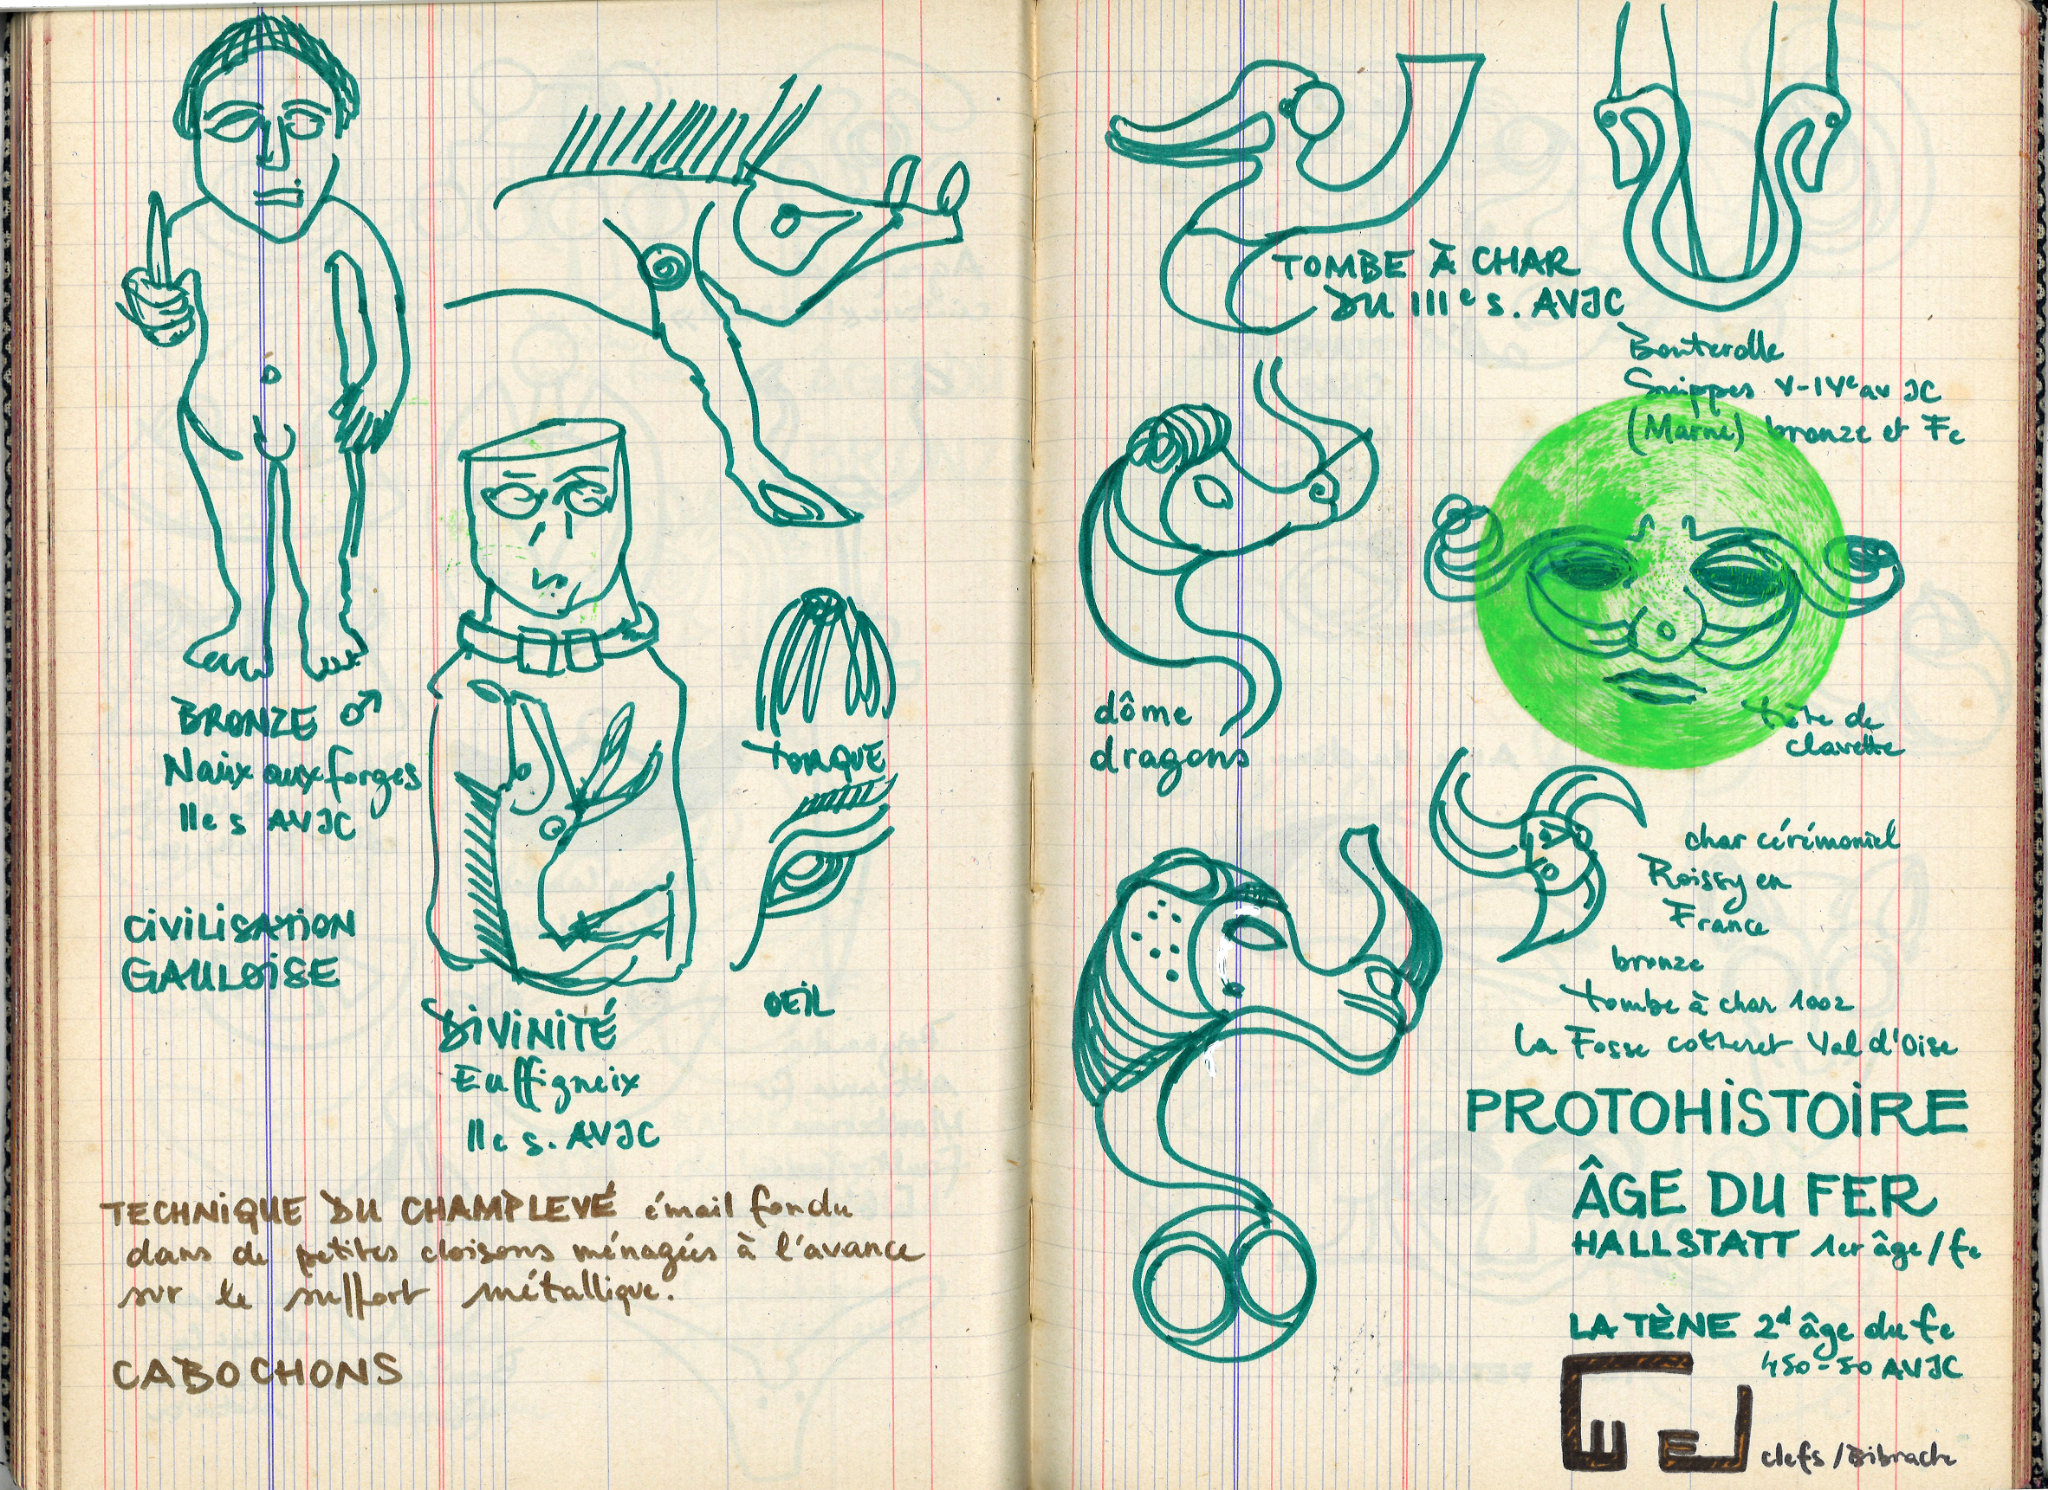 BRONZE ♂
Naix aux forges
IIe s AVJC
CIVILISATION
GAULOISE
DIVINITÉ
Euffigneix
IIe s. AVJC
TORQUE
OEIL
TECHNIQUE DU CHAMPLEVÉ émail fondu
dans de petites cloisons ménagées à l'avance
sur le support métallique.
CABOCHONS
TOMBE À CHAR
DU IIIe s. AVJC
Bouterolle
Suippes V-IVe av JC
(Marne) bronze et Fe
dôme
dragons
tête de
clavette
char cérémoniel
Roissy en
France
bronze
tombe à char 1002
La Fosse cotheret Val d'Oise
PROTOHISTOIRE
ÂGE DU FER
HALLSTATT 1er âge/fe
LA TÈNE 2d âge du fe
450-50 AVJC
clefs/Bibracte